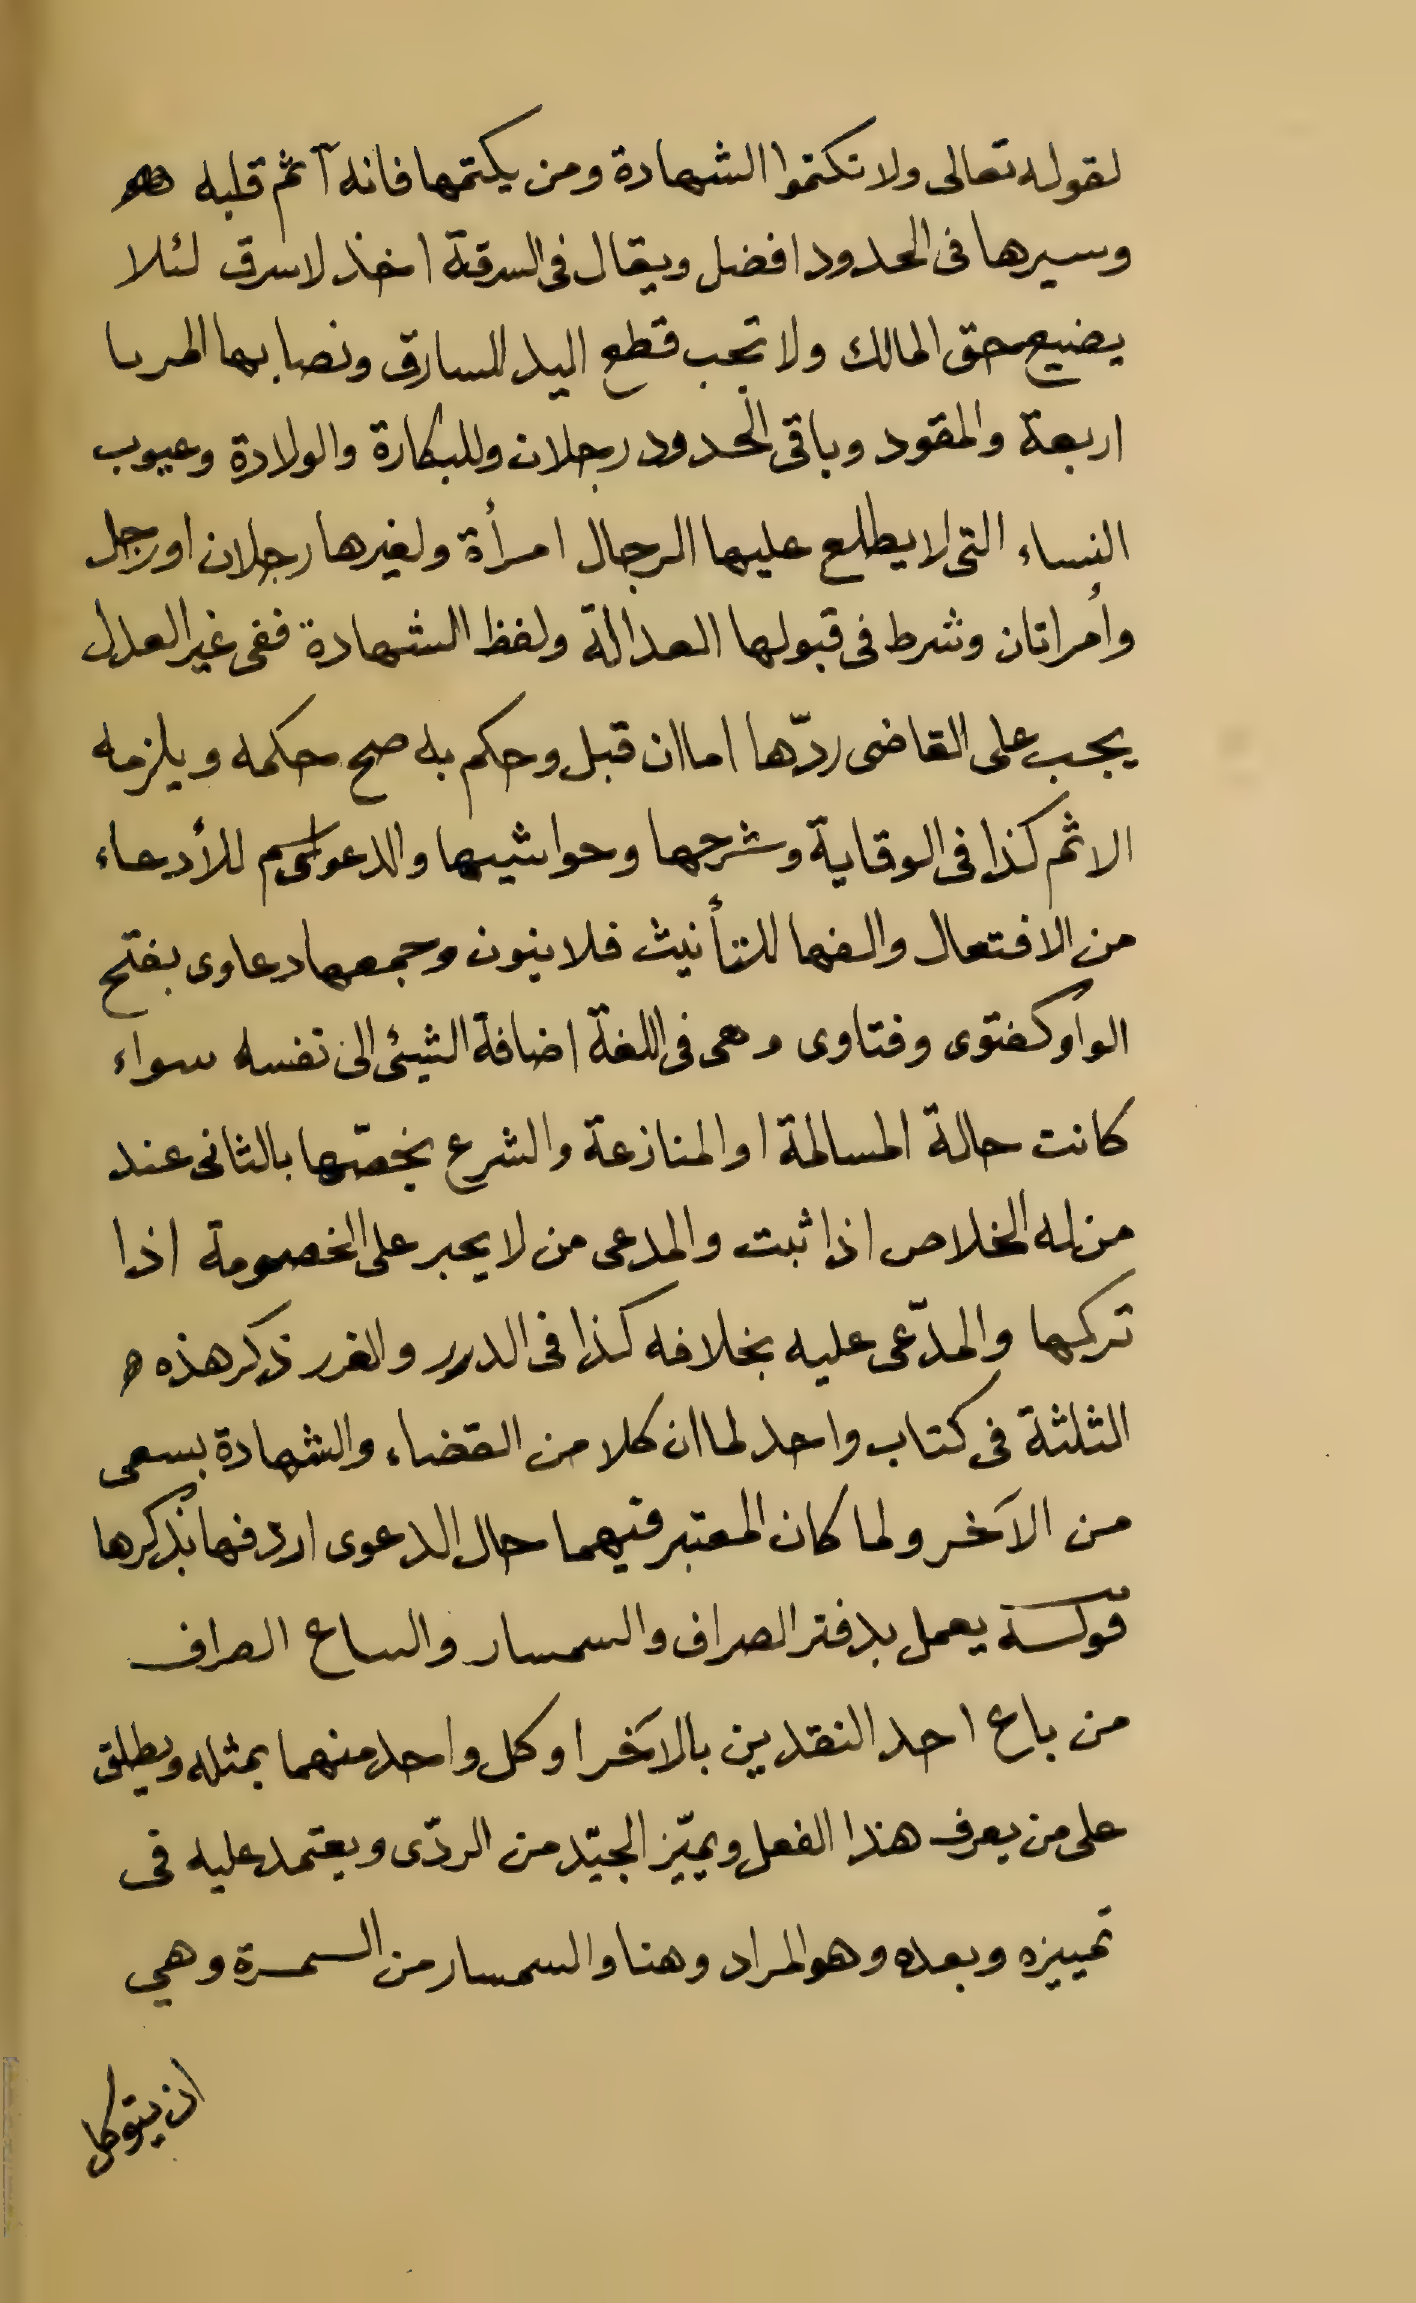 لقوله تعالى ولا تكتموا الشهادة ومن يكتمها فانه آثم قلبه
وسيرها فى الحدود افضل ويقال فى السرقة اخذ لا سرق لئلا
يضيع حق المالك ولا تجب قطع اليد للسارق ونصابها المربا
اربعة والمقود وباقى الحدود رجلان وللبكارة والولادة وعيوب
النساء التى لا يطلع عليها الرجال امرأة ولغيرها رجلان اورجل
وأمراتان وشرط فى قبولها العدالة ولفظ الشهادة ففى غير العدل
يجب على القاضى ردّها اما ان قبل وحكم به صح حكمه ويلزمه
الاثم كذا فى الوقاية وشرحها وحواشيها والدعوى اسم للأدعاء
من الافتعال والفها للتأنيث فلا ينون وجمعها دعاوى بفتح
الواو كفتوى وفتاوى وهى فى اللغة اضافة الشيئ الى نفسه سواء
كانت حالة المسالمة او المنازعة والشرع يخصّها بالثانى عند
من له الخلاص اذا ثبت والمدعى من لا يجبر على الخصومة اذا
تركها والمدّعى عليه بخلافه كذا فى الدرر والغرر ذكر هذه
الثلثة فى كتاب واحد لما ان كلا من القضاء والشهادة يسعى
من الآخر ولما كان المعتبر فيهما حال الدعوى اردفها بذكرها
قوله يعمل بدفتر الصراف والسمسار والساع الصراف
من باع احد النقدين بالآخر اوكل واحد منهما بمثله ويطلق
على من يعرف هذا الفعل ويميّز الجيّد من الردّى ويعتمد عليه فى
تمييزه وبعده وهو المراد وهنا والسمسار من السمسرة وهي
ان يتوكل